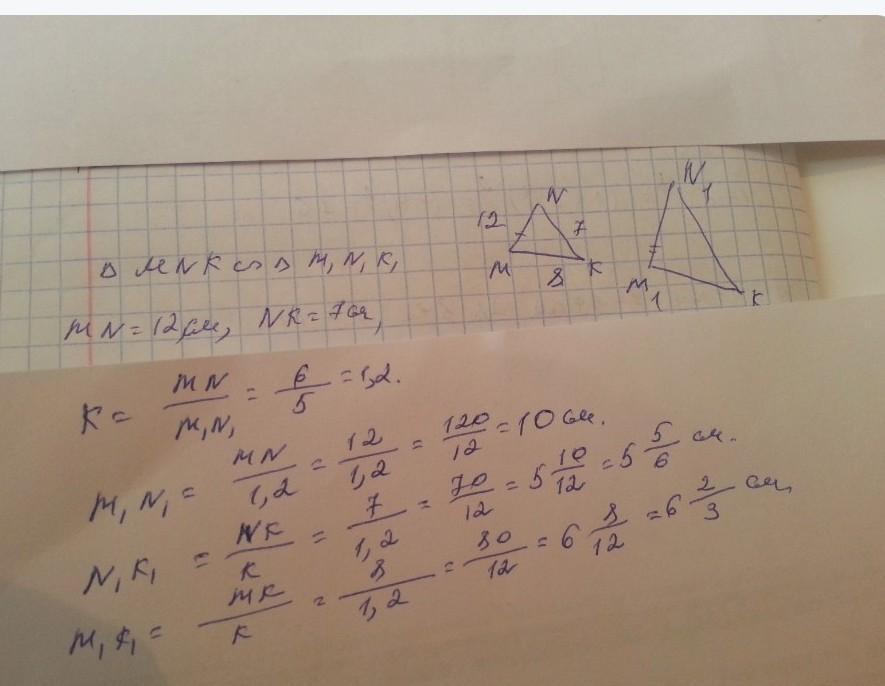 N N₁
12 7
M 8 K M₁ K
△ MNK ∽ △ M₁N₁K₁
MN = 12 см, NK = 7 см,
K = MN/M₁N₁ = 6/5 = 1,2.
M₁N₁ = MN/1,2 = 12/1,2 = 120/12 = 10 см.
N₁K₁ = NK/K = 7/1,2 = 70/12 = 5 10/12 = 5 5/6 см.
M₁K₁ = MK/K = 8/1,2 = 80/12 = 6 8/12 = 6 2/3 см